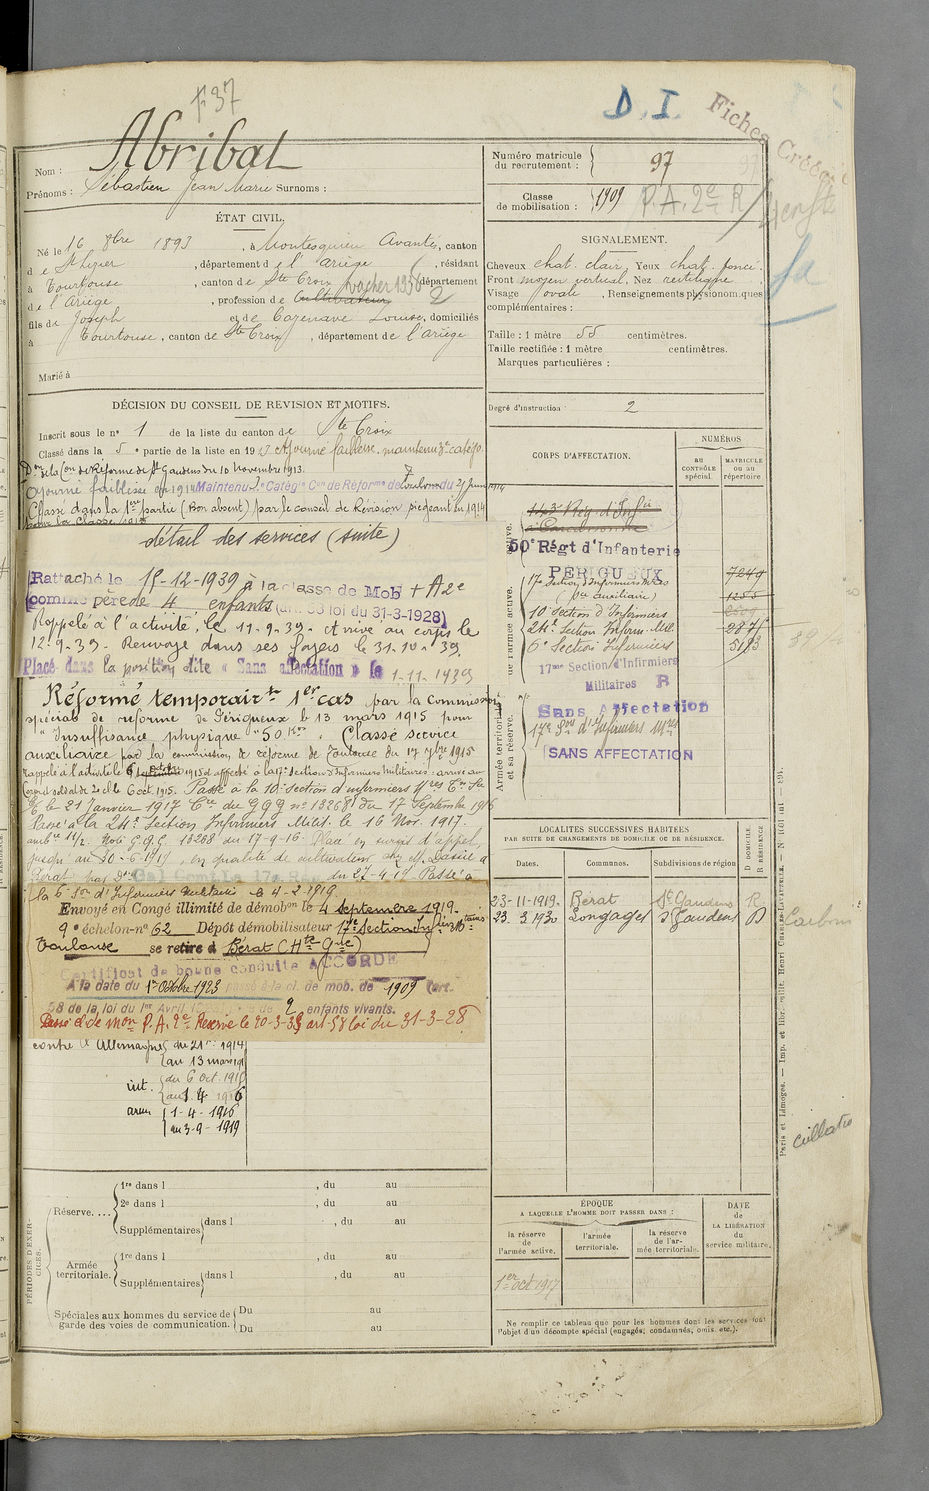 F 37
D. I.
Fiches Créées
Abribat
Nom :
Prénoms : Sébastien Jean Marie Surnoms :
Numéro matricule du recrutement : 97
Classe de mobilisation : 1909 P.A. 2e R
ÉTAT CIVIL.
Né le 16 8bre 1893, à Montesquieu Avantès, canton
de St Lizier, département de l'Ariège, résidant
à Tourtouse, canton de Ste Croix, département
vacher 1936
de l'Ariège, profession de Cultivateur
fils de Joseph et de Cazenave Louise, domiciliés
à Tourtouse, canton de Ste Croix, département de l'Ariège
Marié à
SIGNALEMENT.
Cheveux chat. clair, Yeux chat. foncé.
Front moyen vertical, Nez rectiligne
Visage ovale, Renseignements physionomiques
complémentaires :
Taille : 1 mètre 55 centimètres.
Taille rectifiée : 1 mètre centimètres.
Marques particulières :
Degré d'instruction : 2
DÉCISION DU CONSEIL DE REVISION ET MOTIFS.
Inscrit sous le n° 1 de la liste du canton de Ste Croix
Classé dans la 5e partie de la liste en 1913 Ajourné faiblesse. maintenu
Don de la Con de Réforme de St Gaudens du 10 Novembre 1913.
Ajourné faiblesse en 1914 Maintenu 2e Catégie Con de Réforme de Toulouse du 27 Juin 1914
Classé dans la 1ère partie (Bon absent) par le conseil de Révision siégeant en 1914
pour la classe 1915
détail des services (suite)
Rattaché le 15-12-1939 à la classe de Mob + A 2e
comme père de 4 enfants (art. 58 loi du 31-3-1928)
Rappelé à l'activité, le 11-9-39. Arrivé au corps le
12-9-39. Renvoyé dans ses foyers le 31-10-39.
Placé dans la position dite « Sans affectation » le 1-11-1939
Réformé temporairt 1er cas par la Commission
spéciale de réforme de Périgueux le 13 mars 1915 pour
"Insuffisance physique" 50 Kos. Classé service
auxiliaire par la commission de réforme de Toulouse du 17 7bre 1915
Rappelé à l'activité le 6 octobre 1915 et affecté à la 17e Section d'Infirmiers Militaires : arrivé au
Corps et soldat de 2e cl. le 6 oct. 1915. Passé à la 10e section d'infirmiers
le 21 Janvier 1917 Cre du G.Q.G no 13268 du 17 Septembre 1916
Passé à la 24e Section Infirmiers Milit. le 16 Nov. 1917.
Note G.Q.G. 13268 du 17-9-16. Placé en sursis d'appel
jusqu'au 30-6-1919, en qualité de cultivateur
Bérat du 27-4-19 Passé à
la 6e Son d'Infirmiers Militaires le 4-2-1919
Envoyé en Congé illimité de démobon le 4 Septembre 1919.
9e échelon - n° 62 Dépôt démobilisateur 17e Section d'Infirmiers
Toulouse se retire à Bérat (Hte Gne)
Certificat de bonne conduite ACCORDÉ
A la date du 1er Octobre 1923 passé à la cl. de mob. de 1909 (art.
58 de la loi du 1er Avril père de 2 enfants vivants.
Passé cl. de mon P.A. 2e Réserve le 20-3-35 art. 58 loi du 31-3-28
contre l'Allemagne du 21 1914
au 13 mars 191
int. du 6 oct. 1915
au 1. 4 1916
armées 1-4-1916
au 3-9-1919
CORPS D'AFFECTATION.
NUMÉROS
AU CONTRÔLE spécial.
MATRICULE OU AU RÉPERTOIRE
143e Rég. d'Inf.ie
à Carcassonne
50e Régt d'Infanterie
PERIGUEUX 7249
17e Section d'Infirmiers Milres
(Sce auxiliaire) 1255
10 Section d'Infirmiers
24e Section Infirm. Mil. 2875
6e Section Infirmiers 5193
17me Section d'Infirmiers
Militaires R
Sans Affectation
17e Son d'Infirmiers Mres
SANS AFFECTATION
Armée territoriale et sa réserve.
LOCALITÉS SUCCESSIVES HABITÉES
PAR SUITE DE CHANGEMENTS DE DOMICILE OU DE RÉSIDENCE.
D DOMICILE. R RÉSIDENCE
Dates. Communes. Subdivisions de région
23-11-1919. Bérat St Gaudens R
23. 3 1930 Longages St Gaudens D
Carbonne
ÉPOQUE
A LAQUELLE L'HOMME DOIT PASSER DANS :
la réserve de l'armée active.
l'armée territoriale.
la réserve de l'armée territoriale.
DATE DE LA LIBÉRATION du service militaire.
1er oct 1917
Ne remplir ce tableau que pour les hommes dont les services font
l'objet d'un décompte spécial (engagés, condamnés, omis, etc.).
PÉRIODES D'EXERCICES.
Réserve.... 1re dans l , du au
2e dans l , du au
Supplémentaires dans l , du au
Armée territoriale. 1re dans l , du au
Supplémentaires dans l , du au
Spéciales aux hommes du service de garde des voies de communication. Du au
Du au
Paris et Limoges. — Imp. et libr. milit. Henri Charles-Lavauzelle.